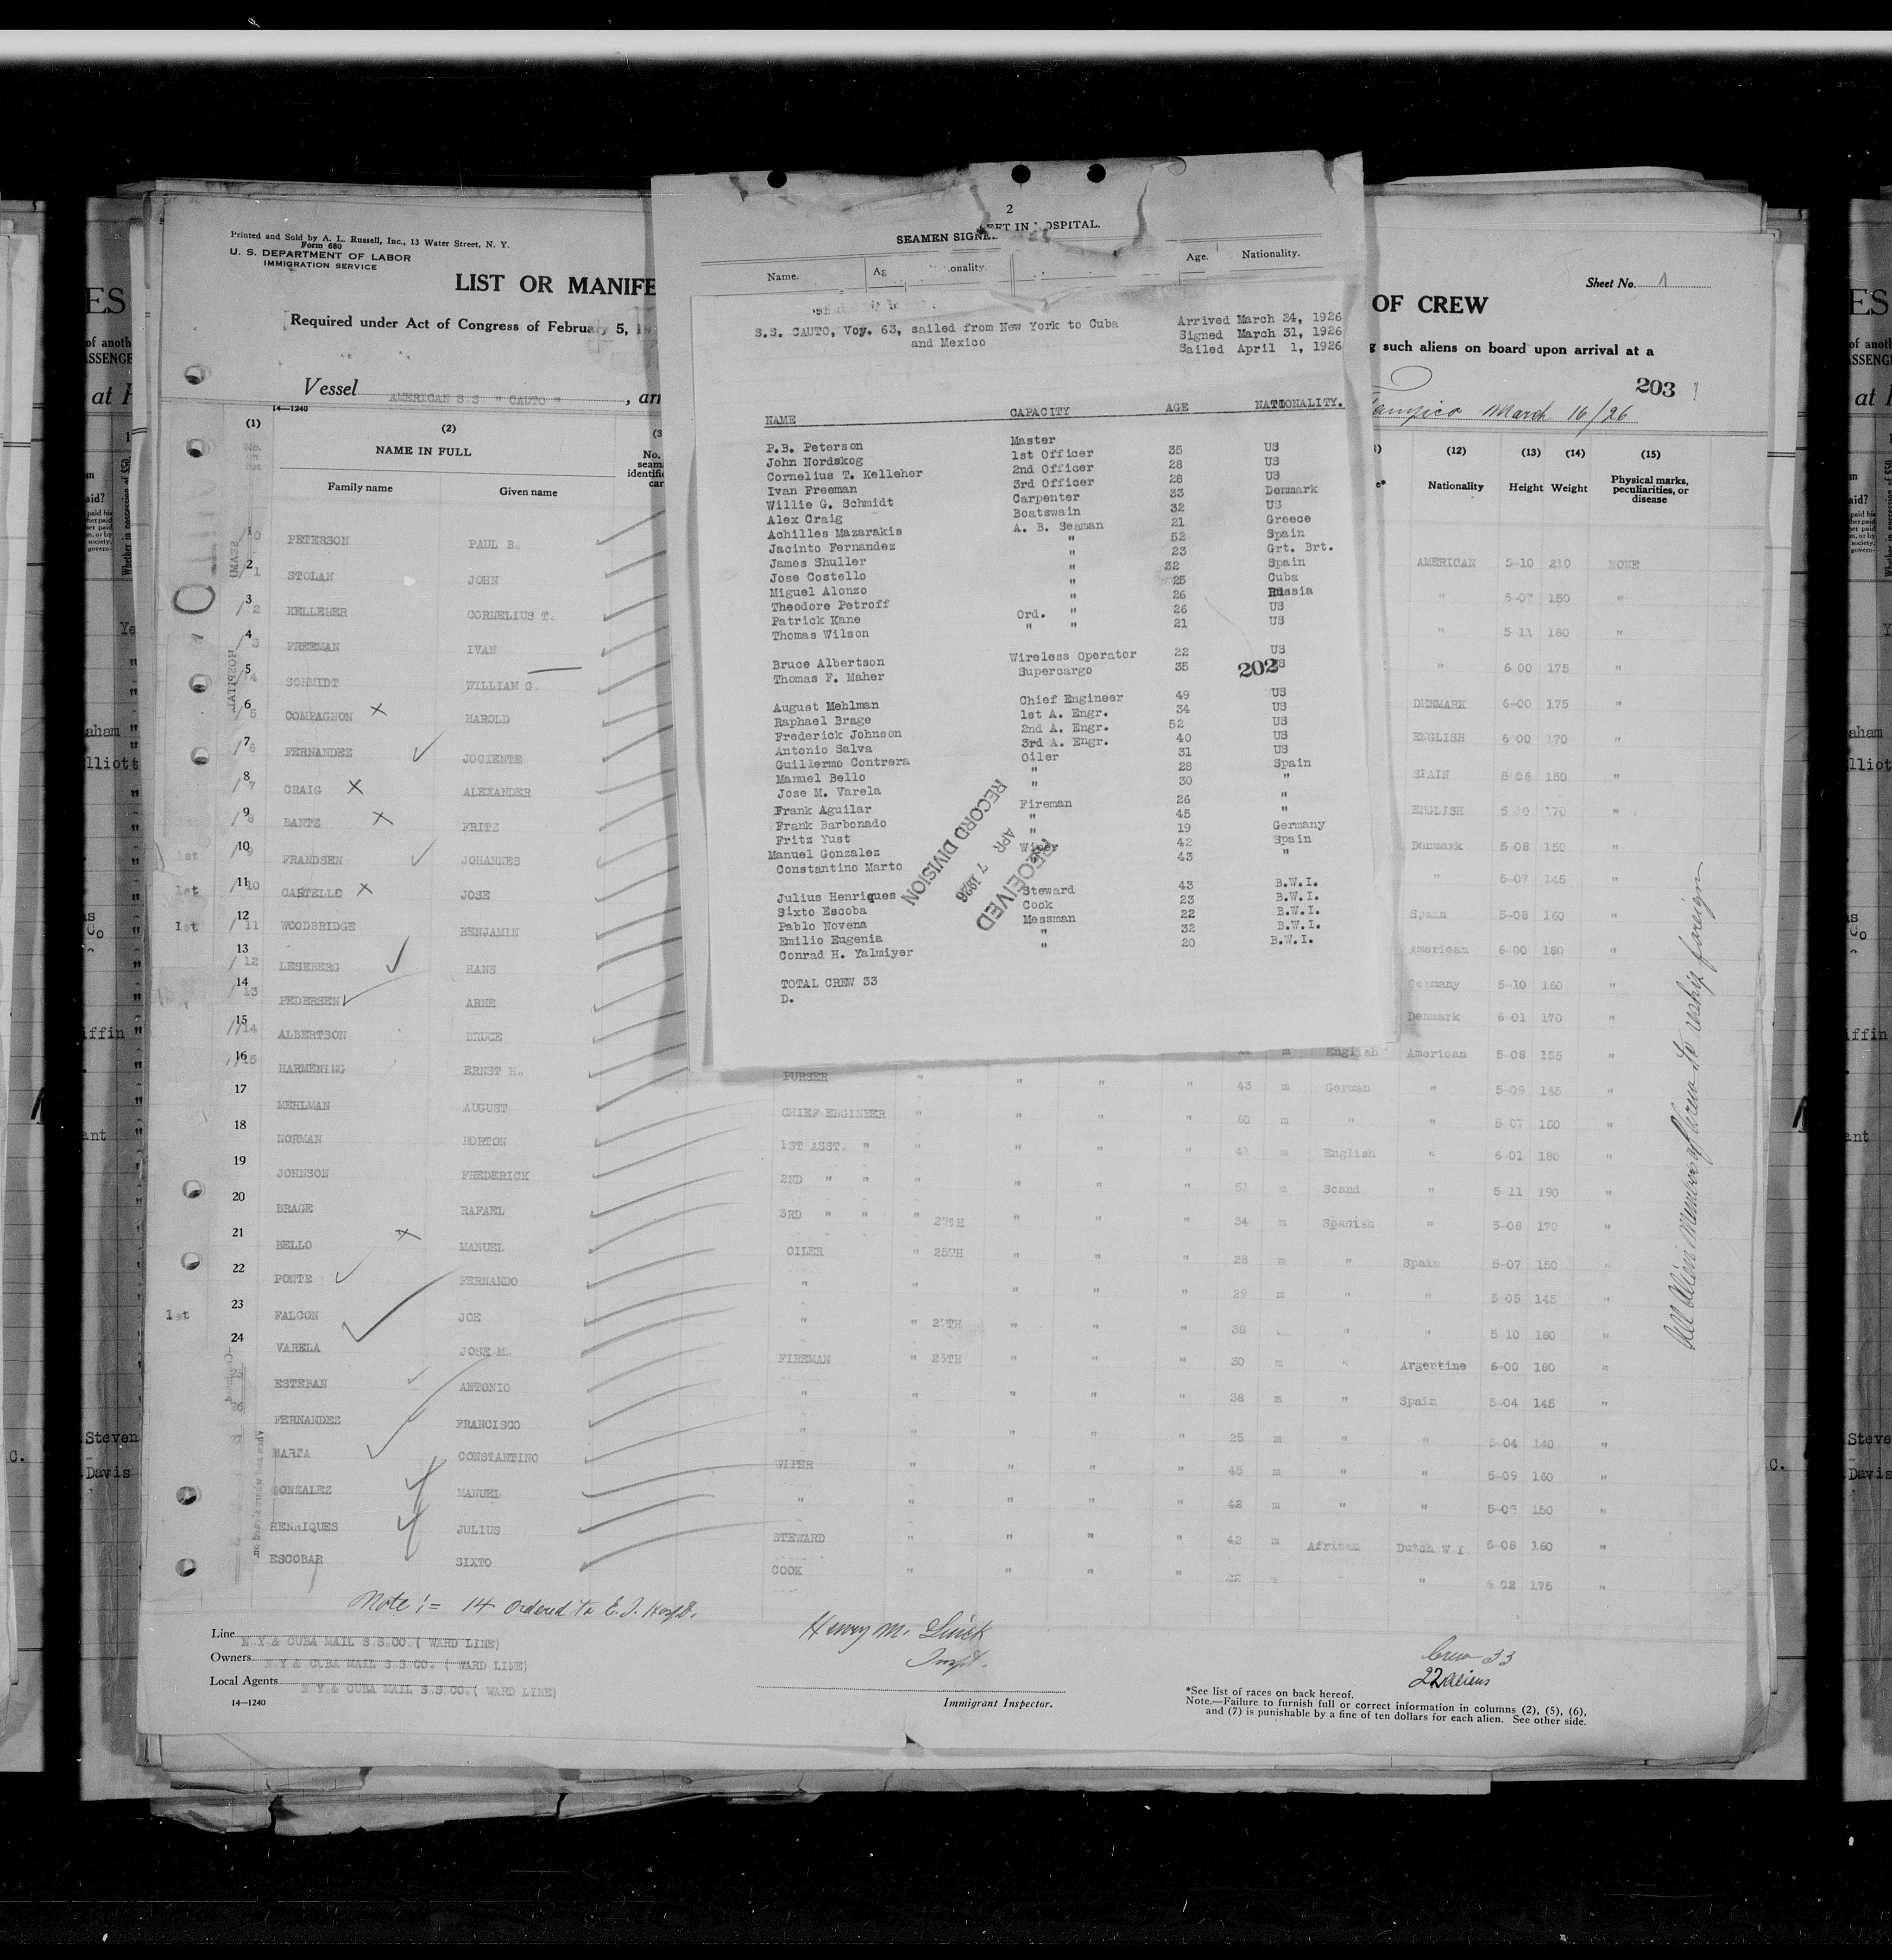 Printed and Sold by A. L. Russell, Inc., 13 Water Street, N. Y.
Form 680
U. S. DEPARTMENT OF LABOR
IMMIGRATION SERVICE
LIST OR MANIFE
Required under Act of Congress of February 5,
Vessel AMERICAN S S " CAUTO " , arr
14—1240
OF CREW
Sheet No. 1
g such aliens on board upon arrival at a
203
Tampico March 16/26
2
SEAMEN SIGNE
LEFT IN HOSPITAL.
Name. Ag onality. Age. Nationality.
S.S. CAUTO, Voy. 63, sailed from New York to Cuba
and Mexico
Arrived March 24, 1926
Signed March 31, 1926
Sailed April 1, 1926
NAME CAPACITY AGE NATIONALITY.
P.B. Peterson Master 35 US
John Nordskog 1st Officer 28 US
Cornelius T. Kelleher 2nd Officer 28 US
Ivan Freeman 3rd Officer 33 Denmark
Willie G. Schmidt Carpenter 32 US
Alex Craig Boatswain 21 Greece
Achilles Mazarakis A. B. Seaman 52 Spain
Jacinto Fernandez " 23 Grt. Brt.
James Shuller " 32 Spain
Jose Costello " 25 Cuba
Miguel Alonzo " 26 Russia
Theodore Petroff " 26 US
Patrick Kane Ord. " 21 US
Thomas Wilson " "
Bruce Albertson Wireless Operator 22 US
Thomas F. Maher Supercargo 35 US
202
August Mehlman Chief Engineer 49 US
Raphael Brage 1st A. Engr. 34 US
Frederick Johnson 2nd A. Engr. 52 US
Antonio Salva 3rd A. Engr. 40 US
Guillermo Contrera Oiler 31 US
Manuel Bello " 28 Spain
Jose M. Varela " 30 "
Frank Aguilar Fireman 26 "
Frank Barbonado " 45 "
Fritz Yust " 19 Germany
Manuel Gonzalez Wiper 42 Spain
Constantino Marto 43 "
Julius Henriques Steward 43 B.W.I.
Sixto Escoba Cook 23 B.W.I.
Pablo Novena Messman 22 B.W.I.
Emilio Eugenia " 32 B.W.I.
Conrad H. Yalmiyer " 20 B.W.I.
TOTAL CREW 33
D.
RECEIVED
APR 7 1926
RECORD DIVISION
(1) (2) (12) (13) (14) (15)
NAME IN FULL
Family name Given name
Nationality Height Weight Physical marks, peculiarities, or disease
1 PETERSON PAUL B. AMERICAN 5-10 210 NONE
2 STOLAN JOHN " 5-07 150 "
3 KELLEHER CORNELIUS T. " 5-11 180 "
4 FREEMAN IVAN " 6 00 175 "
5 SCHMIDT WILLIAM G. DENMARK 6-00 175 "
6 COMPAGNON HAROLD ENGLISH 6 00 170 "
7 FERNANDEZ JOCIENTE SPAIN 5-06 150 "
8 CRAIG ALEXANDER ENGLISH 170 "
9 BANTZ FRITZ Denmark 5-08 150 "
1st 10 FRANDSEN JOHANNES " 5-07 145 "
1st 11 CASTELLO JOSE Spain 5-08 160 "
1st 12 WOODBRIDGE BENJAMIN American 6-00 180 "
13 LESEBERG HANS Germany 5-10 160 "
14 PEDERSEN ARNE Denmark 6-01 170 "
15 ALBERTSON BRUCE m English American 5-08 155 "
16 HARMENING ERNST H. PURSER " " " " 43 m German " 5-09 165 "
17 MEHLMAN AUGUST CHIEF ENGINEER " " " " 50 m " " 5 07 150 "
18 NORMAN HORTON 1ST ASST. " " " " " 41 m English " 6-01 180 "
19 JOHNSON FREDERICK 2ND " " " " " " 51 m Scand " 5-11 190 "
20 BRAGE RAFAEL 3RD " " " 27TH " " " 34 m Spanish " 5-08 170 "
21 BELLO MANUEL OILER " 25TH " " " 28 m " Spain 5-07 150 "
22 PONTE FERNANDO " " " " " 29 m " " 5-05 145 "
1st 23 FALCON JOE " " 27TH " " " 38 " " 5 10 180 "
24 VARELA JOSE M. FIREMAN " 25TH " " " 30 m " Argentine 6-00 180 "
25 ESTEBAN ANTONIO " " " " " 38 m " Spain 5-04 145 "
26 FERNANDEZ FRANCISCO " " " " " 25 m " " 5-04 140 "
27 MARTA CONSTANTINO WIPER " " " " 45 m " " 5-09 160 "
GONZALEZ MANUEL " " " " " 42 m " " 150 "
HENRIQUES JULIUS STEWARD " " " " 42 m African Dutch W I 5-08 160 "
ESCOBAR SIXTO COOK " " " " " 175 "
All Alien Members of Crew to reship foreign
Note:= 14 Ordered to E. I. Hosp't.
Henry M. Luick
Insp't.
Immigrant Inspector.
Crew 33
22 aliens
Line N.Y.& CUBA MAIL S.S.CO.( WARD LINE)
Owners N.Y.& CUBA MAIL S.S.CO. ( WARD LINE)
Local Agents N.Y.& CUBA MAIL S.S.CO.( WARD LINE)
14—1240
*See list of races on back hereof.
Note.—Failure to furnish full or correct information in columns (2), (5), (6),
and (7) is punishable by a fine of ten dollars for each alien. See other side.